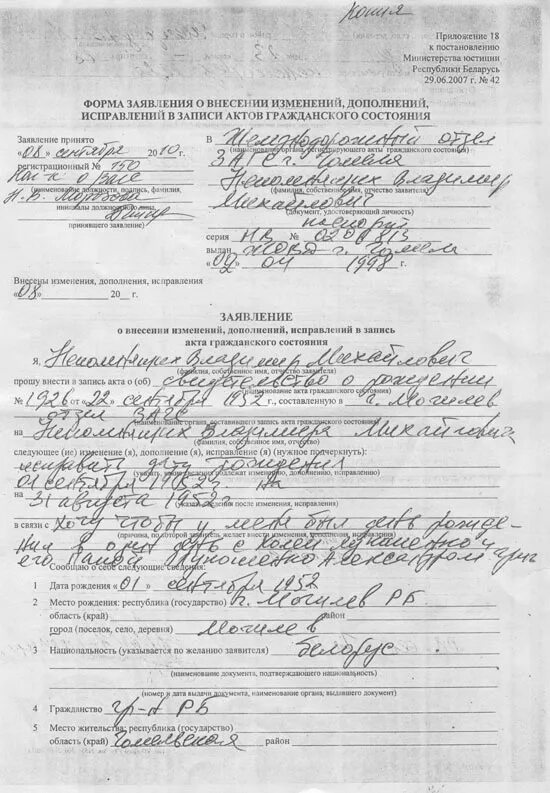 Копия
Приложение 18
к постановлению
Министерства юстиции
Республики Беларусь
29.06.2007 г. № 42
ФОРМА ЗАЯВЛЕНИЯ О ВНЕСЕНИИ ИЗМЕНЕНИЙ, ДОПОЛНЕНИЙ,
ИСПРАВЛЕНИЙ В ЗАПИСИ АКТОВ ГРАЖДАНСКОГО СОСТОЯНИЯ
Заявление принято
«08» сентября 2010 г.
регистрационный № 150
(наименование должности, подпись, фамилия,
инициалы должностного лица,
принявшего заявление)
Внесены изменения, дополнения, исправления
«08» 20 г.
В Железнодорожный отдел
(наименование органа, регистрирующего акты гражданского состояния)
ЗАГС г. Гомеля
Непомнящих Владимир
(фамилия, собственное имя, отчество заявителя)
Михайлович
(документ, удостоверяющий личность)
паспорт
серия НВ №
выдан ЖОВД г. Гомеля
« » 04 1998 г.
ЗАЯВЛЕНИЕ
о внесении изменений, дополнений, исправлений в запись
акта гражданского состояния
Я, Непомнящих Владимир Михайлович
(фамилия, собственное имя, отчество заявителя)
прошу внести в запись акта о (об) свидетельство о рождении
№ 1926 от «22» сентября 1952 г., составленную в г. Могилев
отдел ЗАГС
(наименование органа, составившего запись акта гражданского состояния)
на Непомнящих Владимира Михайловича
(фамилия, собственное имя, отчество)
следующее (ие) изменение (я), дополнение (я), исправление (я) (нужное подчеркнуть):
исправить дату рождения
01 сентября 1952 г. на
на 31 августа 1952 г.
(указать сведения после изменения, исправления)
в связи с хочу чтобы у меня был день рожде-
(причина, по которой заявитель желает внести изменения, дополнения, исправления)
ния в один день с Колей Лукашенко и
его Папой Лукошенко Александром Григ
Сообщаю о себе следующие сведения:
1 Дата рождения «01» сентября 1952
2 Место рождения: республика (государство) г. Могилев РБ
область (край) район
город (поселок, село, деревня) Могилев
3 Национальность (указывается по желанию заявителя) белорус
(наименование документа, подтверждающего национальность)
(номер и дата выдачи документа, наименование органа, выдавшего документ)
4 Гражданство гр-н РБ
5 Место жительства: республика (государство)
область (край) Гомельская район